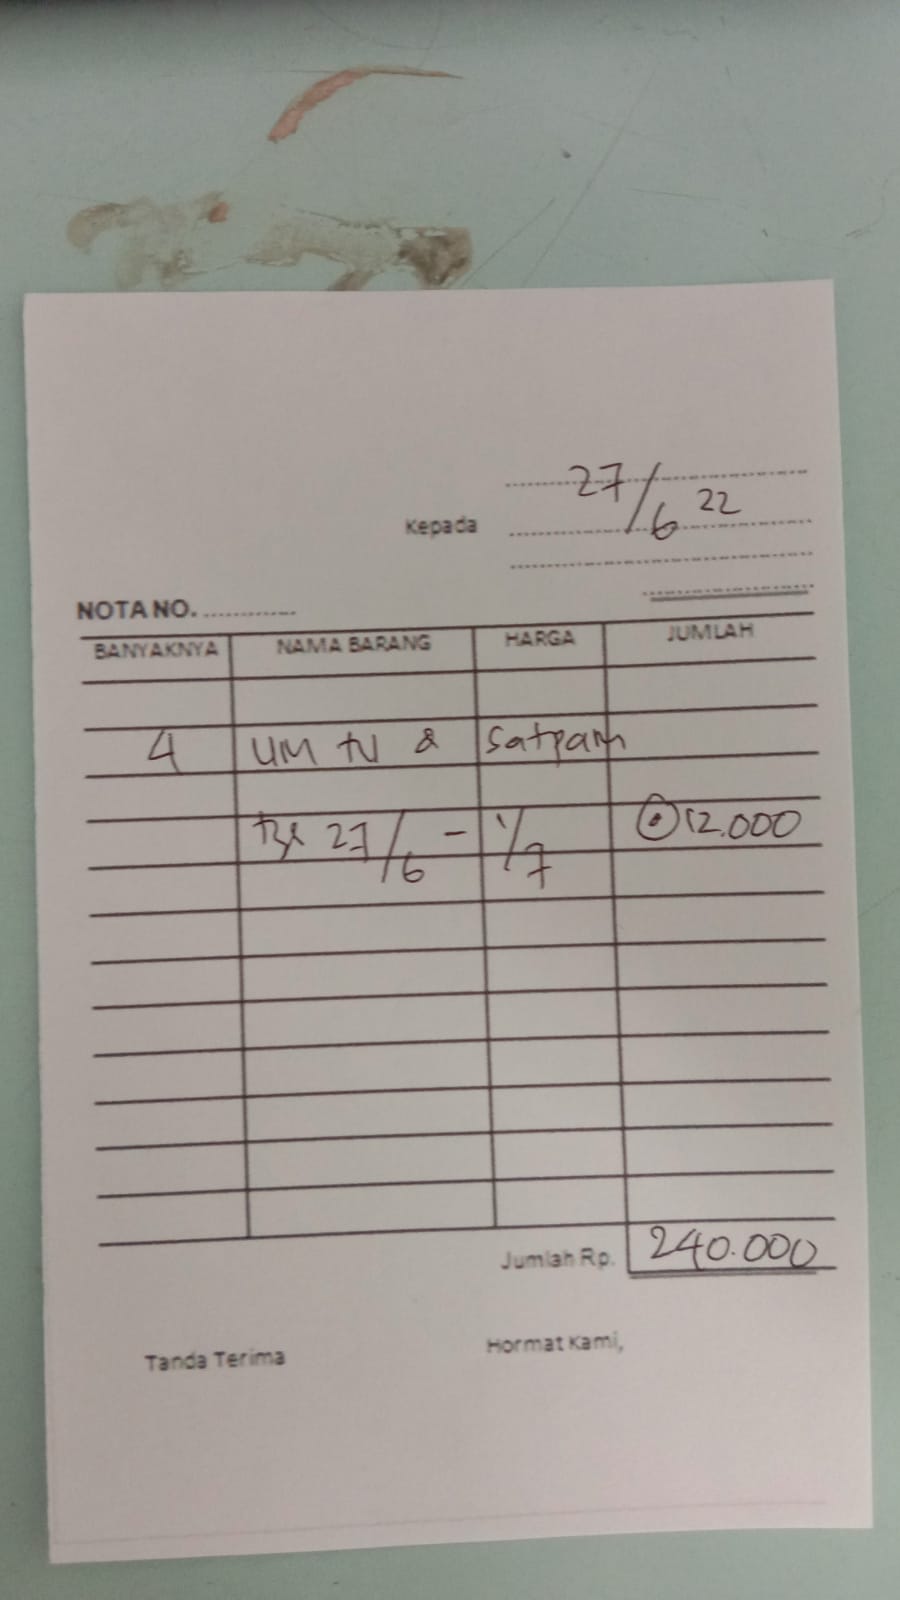 27/6 22
Kepada
NOTA NO. .............
BANYAKNYA NAMA BARANG HARGA JUMLAH
4 UM TU & Satpam
27/6 - 1/7 @ 12.000
Jumlah Rp. 240.000
Tanda Terima Hormat Kami,